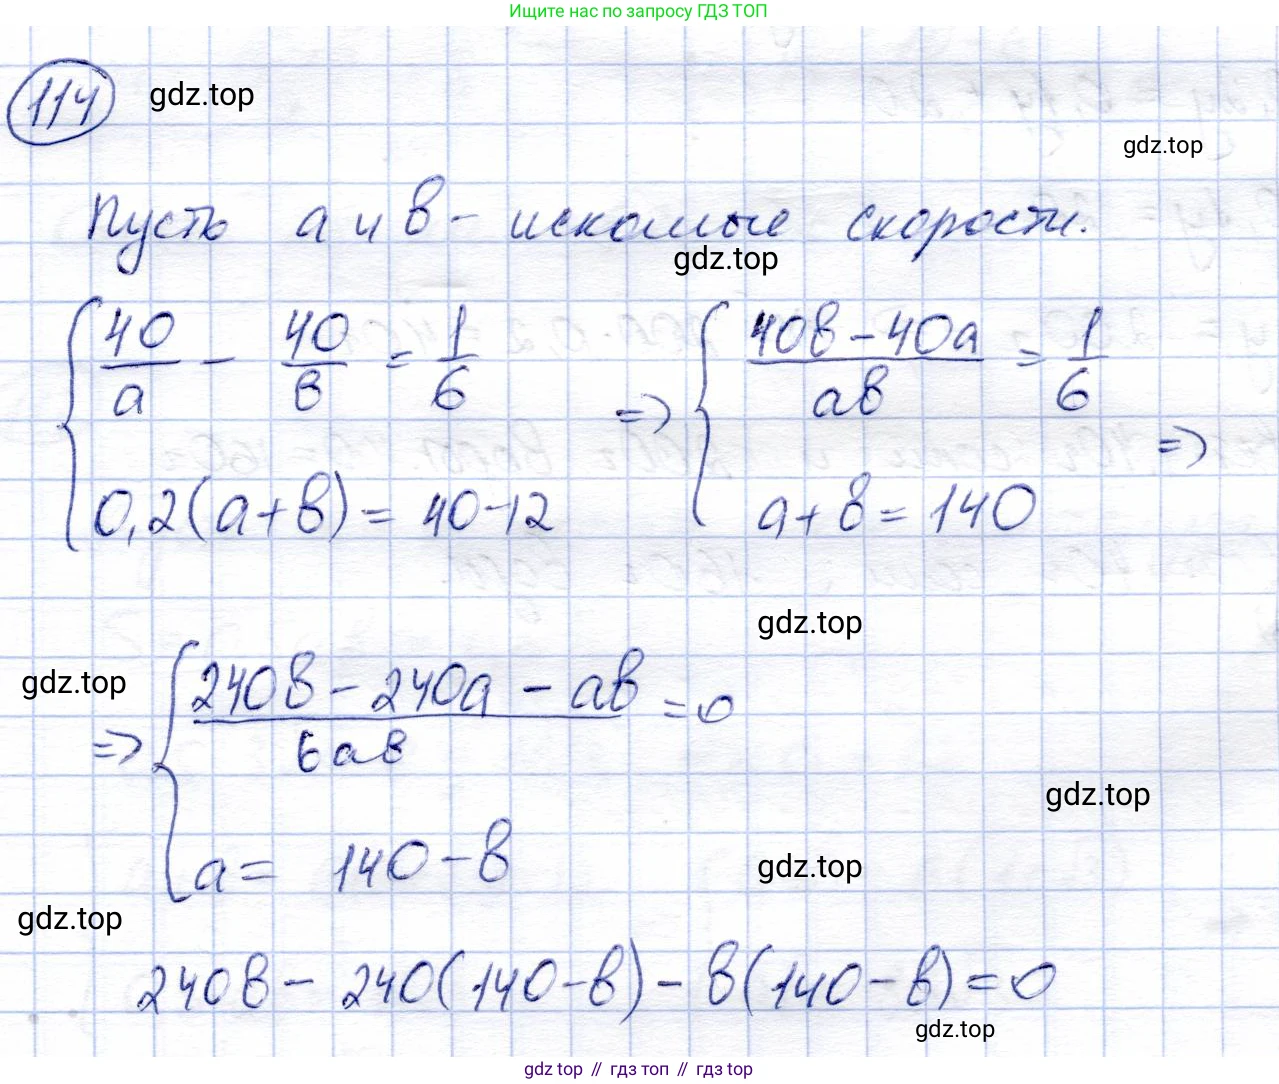 Ищите нас по запросу ГДЗ ТОП
114 gdz.top
gdz.top
Пусть а и в - искомые скорости.
gdz.top
{ 40/a - 40/в = 1/6 => { (40в - 40a)/aв = 1/6 =>
0,2(a+в) = 40-12 a+в = 140
gdz.top
gdz.top
=> { (240в - 240a - aв)/6aв = 0
gdz.top
a = 140 - в
gdz.top
gdz.top
240в - 240(140-в) - в(140-в) = 0
gdz.top
gdz top // гдз топ // гдз top